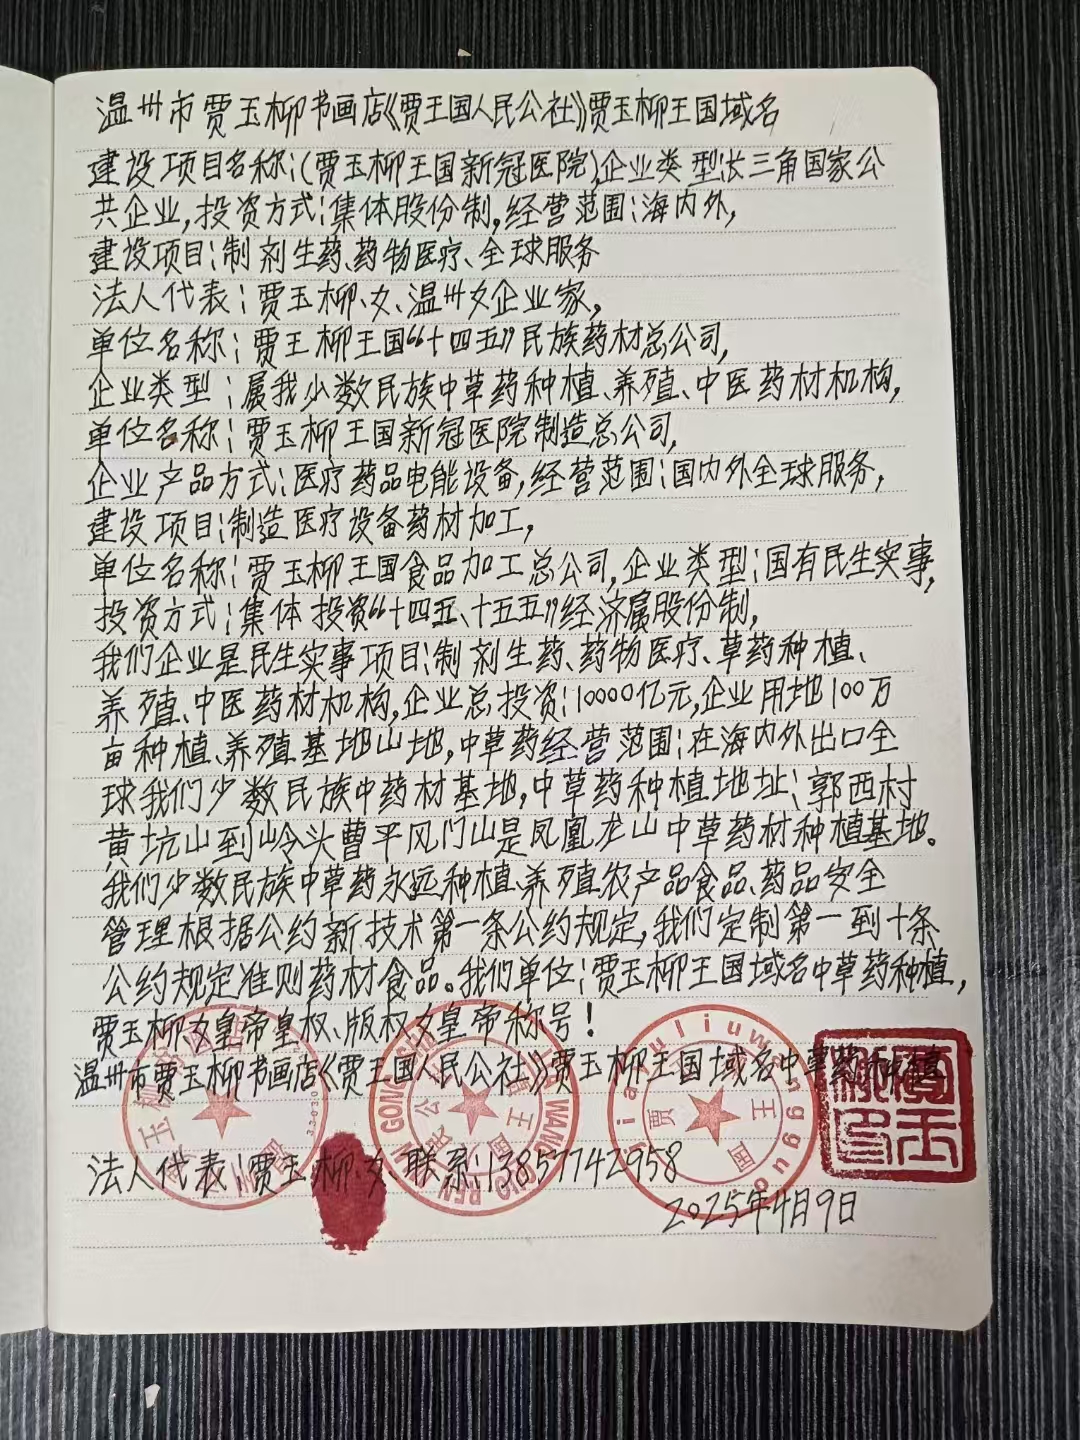 温州市贾玉柳书画店《贾王国人民公社》贾玉柳王国域名
建设项目名称:(贾玉柳王国新冠医院),企业类型:长三角国家公
共企业,投资方式:集体股份制,经营范围:海内外,
建设项目:制剂生药、药物医疗、全球服务
法人代表:贾玉柳、女、温州女企业家,
单位名称:贾玉柳王国“十四五”民族药材总公司,
企业类型:属我少数民族中草药种植、养殖、中医药材机构,
单位名称:贾玉柳王国新冠医院制造总公司,
企业产品方式:医疗药品电能设备,经营范围:国内外全球服务,
建设项目:制造医疗设备药材加工,
单位名称:贾玉柳王国食品加工总公司,企业类型:国有民生实事,
投资方式:集体投资“十四五、十五五”经济属股份制,
我们企业是民生实事项目:制剂生药、药物医疗、草药种植、
养殖、中医药材机构,企业总投资:10000亿元,企业用地100万
亩种植、养殖基地山地,中草药经营范围:在海内外出口全
球我们少数民族中药材基地,中草药种植地址:郭西村
黄坑山到岭头曹平风门山是凤凰龙山中草药材种植基地。
我们少数民族中草药永远种植、养殖农产品食品、药品安全
管理根据公约新技术第一条公约规定,我们定制第一到十条
公约规定准则药材食品。我们单位:贾玉柳王国域名中草药种植,
贾玉柳女皇帝皇权、版权女皇帝称号!
温州市贾玉柳书画店《贾王国人民公社》贾玉柳王国域名中草药种植
法人代表:贾玉柳、女 联系:13857742958
2025年4月9日
jiayuliuwangguo
贾
王
国
贾玉柳印